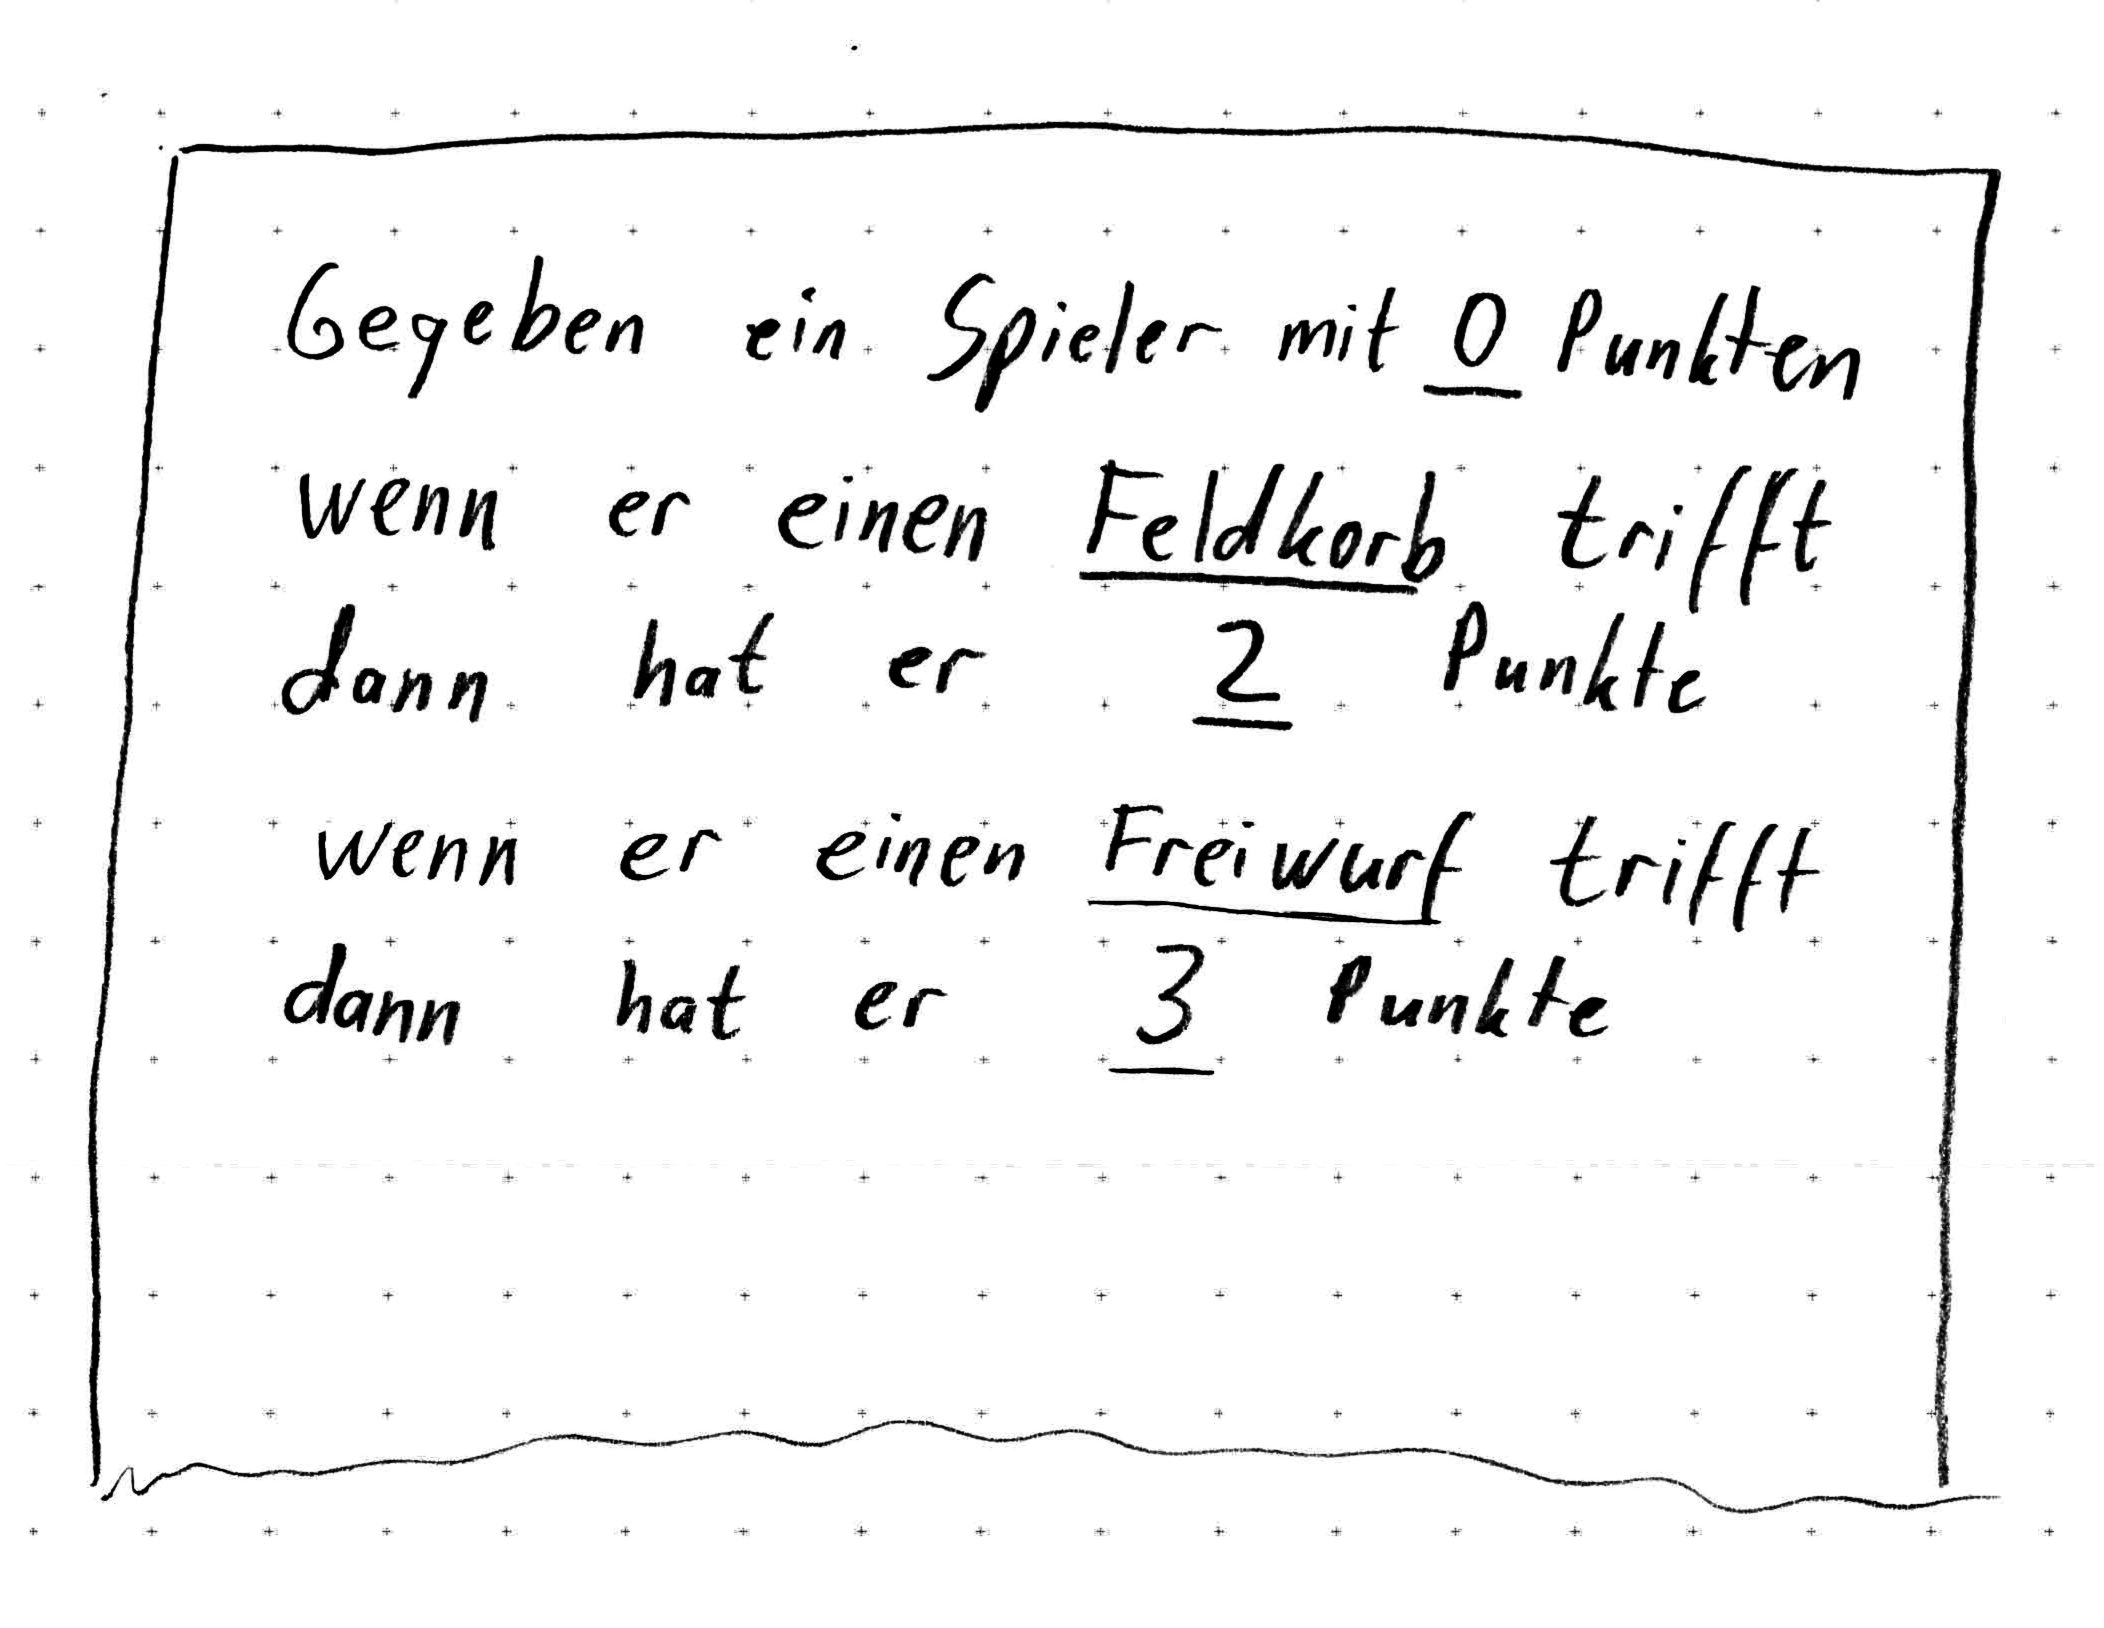 Gegeben ein Spieler mit 0 Punkten
wenn er einen Feldkorb trifft
dann hat er 2 Punkte
wenn er einen Freiwurf trifft
dann hat er 3 Punkte